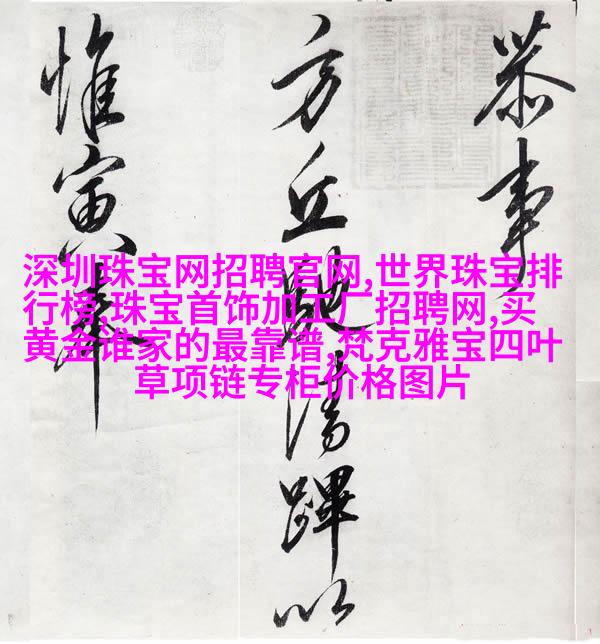 恭事
方丘馳清蹕以
惟寅奉
深圳珠宝网招聘官网,世界珠宝排
行榜,珠宝首饰加工厂招聘网,买
黄金谁家的最靠谱,梵克雅宝四叶
草项链专柜价格图片